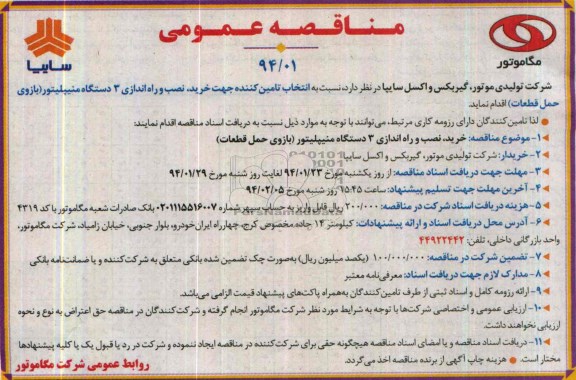 مناقصه عمومی
۹۴/۰۱
سایپا
مگاموتور
شرکت تولیدی موتور، گیربکس و اکسل سایپا در نظر دارد، نسبت به انتخاب تامین کننده جهت خرید، نصب و راه اندازی ۳ دستگاه منیپلیتور (بازوی
حمل قطعات) اقدام نماید.
● لذا تامین‌کنندگان دارای رزومه کاری مرتبط، می‌توانند با توجه به موارد ذیل نسبت به دریافت اسناد مناقصه اقدام نمایند:
● ۱- موضوع مناقصه: خرید، نصب و راه اندازی ۳ دستگاه منیپلیتور (بازوی حمل قطعات)
● ۲- خریدار: شرکت تولیدی موتور، گیربکس و اکسل سایپا
● ۳- مهلت جهت دریافت اسناد مناقصه: از روز یکشنبه مورخ ۹۴/۰۱/۲۳ لغایت روز شنبه مورخ ۹۴/۰۱/۲۹
● ۴- آخرین مهلت جهت تسلیم پیشنهاد: ساعت ۱۵:۴۵ روز شنبه مورخ ۹۴/۰۲/۰۵
● ۵- هزینه دریافت اسناد شرکت در مناقصه: ۲۰۰/۰۰۰ ریال قابل واریز به حساب سپهر شماره ۰۲۰۱۱۱۵۵۱۶۰۰۷ بانک صادرات شعبه مگاموتور با کد ۴۳۱۹
● ۶- آدرس محل دریافت اسناد و ارائه پیشنهادات: کیلومتر ۱۴ جاده مخصوص کرج، چهارراه ایران‌خودرو، بلوار جنوبی، خیابان زامیاد، شرکت مگاموتور،
واحد بازرگانی داخلی، تلفن: ۴۴۹۲۲۴۴۲
● ۷- تضمین شرکت در مناقصه: ۱۰۰/۰۰۰/۰۰۰ (یکصد میلیون ریال) به‌صورت چک تضمین شده بانکی متعلق به شرکت‌کننده و یا ضمانت‌نامه بانکی
● ۸- مدارک لازم جهت دریافت اسناد: معرفی‌نامه معتبر
● ۹- ارائه رزومه کامل و اسناد ثبتی از طرف تامین کنندگان به‌همراه پاکت‌های پیشنهاد قیمت الزامی می‌باشد.
● ۱۰- ارزیابی عمومی و اختصاصی شرکت‌ها با توجه به شرایط مورد نظر شرکت مگاموتور انجام گرفته و شرکت‌کنندگان در مناقصه حق اعتراض به نوع و نحوه
ارزیابی نخواهند داشت.
● ۱۱- دریافت اسناد مناقصه و یا امضای اسناد مناقصه هیچگونه حقی برای شرکت‌کننده در مناقصه ایجاد ننموده و شرکت در رد یا قبول یک یا کلیه پیشنهادها
مختار است. ● هزینه چاپ آگهی از برنده مناقصه اخذ می‌گردد.
روابط عمومی شرکت مگاموتور